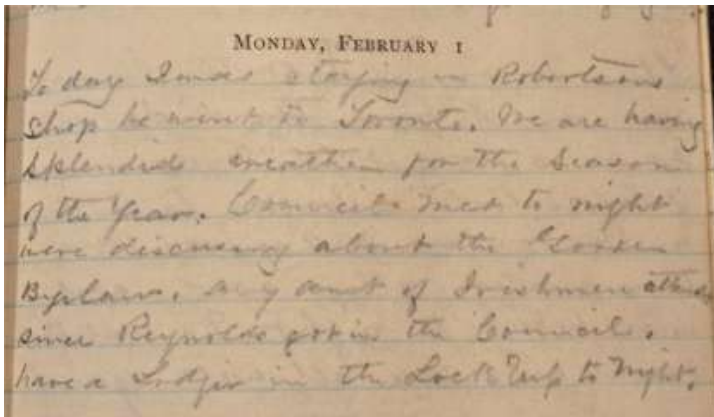 MONDAY, FEBRUARY 1
To day I was staying in Robertsons
shop he went to Toronto. We are having
splendid weather for the Season
of the Year. Council met to night
were discussing about the
Bylaw. any amt of Irishmen attend
since Reynolds got in the Council.
have a Lodger in the Lock Up to Night.